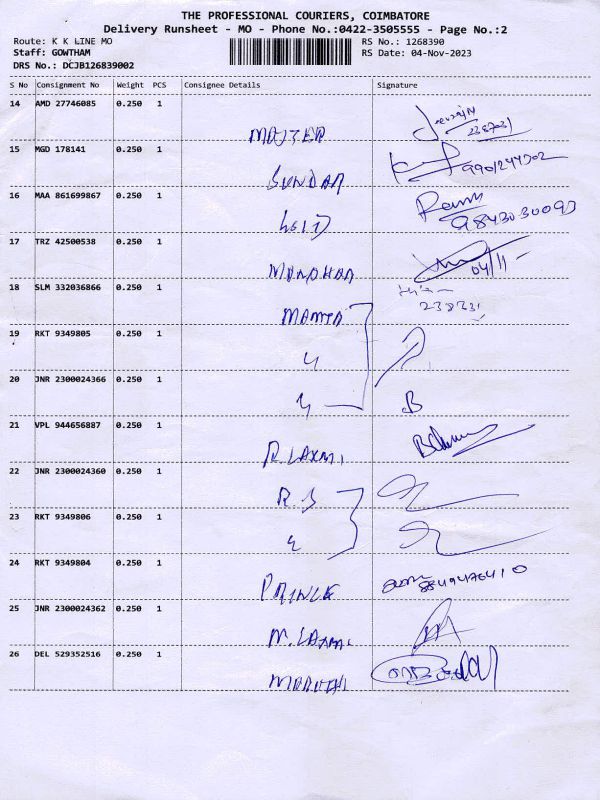 THE PROFESSIONAL COURIERS, COIMBATORE
Delivery Runsheet - MO - Phone No.:0422-3505555 - Page No.:2
Route: K K LINE MO
RS No.: 1268390
Staff: GOWTHAM
RS Date: 04-Nov-2023
DRS No.: DCJB126839002
S No Consignment No Weight PCS Consignee Details Signature
14 AMD 27746085 0.250 1
238731
15 MGD 178141 0.250 1
SUNDAR
9901244302
16 MAA 861699867 0.250 1
9843030093
17 TRZ 42500538 0.250 1
MANOHAR 04/11
18 SLM 332036866 0.250 1
MAMTA 238231
19 RKT 9349805 0.250 1
20 JNR 2300024366 0.250 1
B
21 VPL 944656887 0.250 1
R. LAXMI
22 JNR 2300024360 0.250 1
23 RKT 9349806 0.250 1
24 RKT 9349804 0.250 1
PRINCE
25 JNR 2300024362 0.250 1
M. LAXMI
26 DEL 529352516 0.250 1
MARUTHI